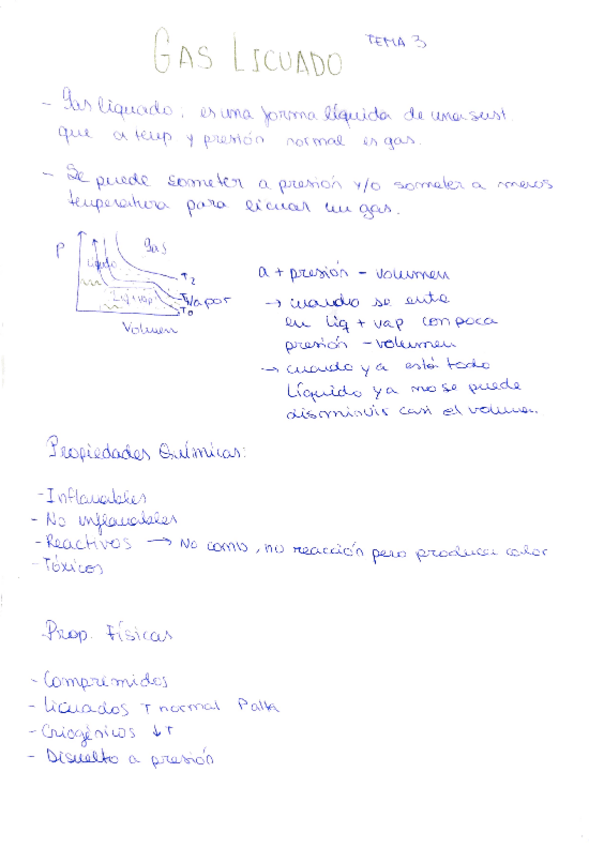 GAS LICUADO TEMA 3
- Gas liquado: es una forma líquida de una sust
que a temp y presión normal es gas.
- Se puede someter a presión y/o someter a menos
temperatura para licuar un gas.
P
Gas
líquido
Liq+vap
Vapor
T2
T1
To
Volumen
a + presión - volumen
→ cuando se entra
en liq + vap con poca
presión - volumen
→ cuando ya está todo
líquido ya no se puede
disminuir casi el volumen.
Propiedades Químicas:
- Inflamables
- No inflamables
- Reactivos → No comb, no reacción pero produce calor
- Tóxicos
Prop. Físicas
- Comprimidos
- Licuados T normal P alta
- Criogénicos ↓T
- Disuelto a presión